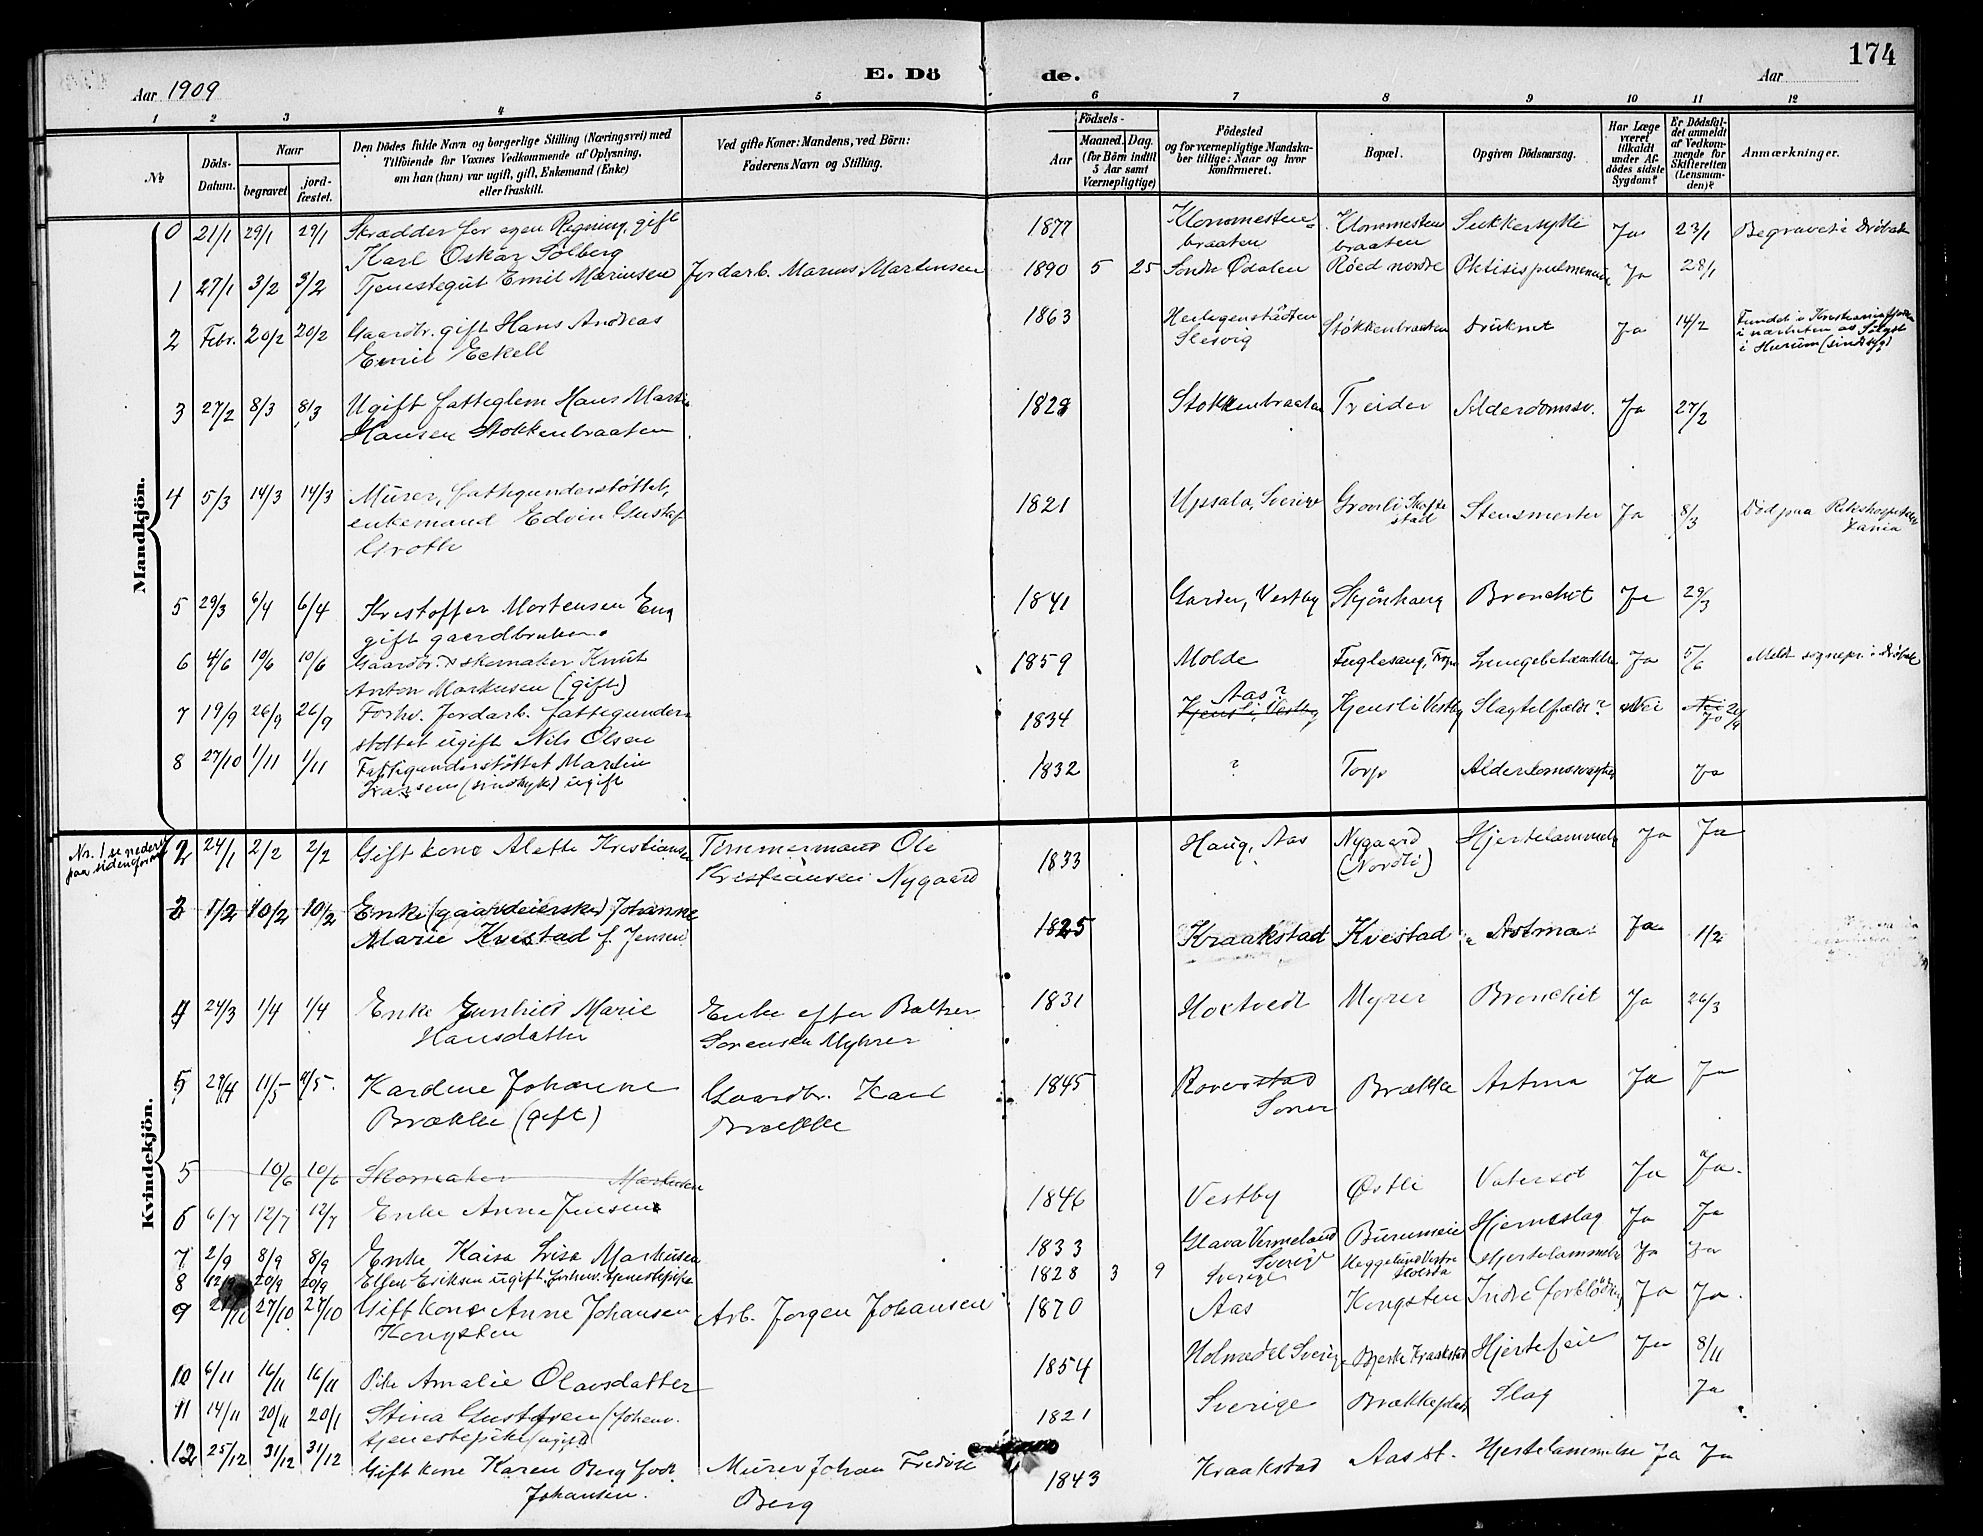 174
E. Dö de.
Aar 1909
Aar
1 2 3 4 5 6 7 8 9 10 11 12
№
Döds-Datum.
Naar
begravet
jord-fæstet.
Den Dödes fulde Navn og borgerlige Stilling (Næringsvei) med
Tilföiende for Voxnes Vedkommende af Oplysning,
om han (hun) var ugift, gift, Enkemand (Enke)
eller fraskilt.
Ved gifte Koner: Mandens, ved Börn:
Faderens Navn og Stilling.
Födsels-
Aar
Maaned. Dag.
(for Börn indtil
5 Aar samt
Værnepligtige)
Födested
og for værnepligtige Mandska-
ber tillige: Naar og hvor
konfirmeret.
Bopæl.
Opgiven Dödsaarsag.
Har Læge
været
tilkaldt
under Af-
dödes sidste
Sygdom?
Er Dödsfal-
det anmeldt
af Vedkom-
mende for
Skifteretten
(Lensman-
den)?
Anmærkninger.
Mandkjön.
0 21/1 29/1 29/1 Skrædder for egen Regning, gift 1877 Klommesten- Klommesten Sukkersyke Ja 23/1 Begravet i Dröbak
Karl Oskar Solberg braaten braaten
1 27/1 3/2 3/2 Tjenestegut Emil Marinsen Jordarb. Marius Martensen 1890 5 25 Söndre Odalen Röed nordre Ja 28/1
2 Febr. 20/2 20/2 Gaardbr. gift Hans Andreas 1863 Heiligenstädten Stökkenbraaten Druknet Ja 14/2 Fundet i Kristianiafjorden
Emil Eckell Slesvig i nærheten av
i Hurum (sindssyg)
3 27/2 8/3 8/3 Ugift fatteglem Hans Martin 1828 Stokkenbraaten Treider Alderdomssv. Ja 27/2
Hansen Stokkenbraaten
4 5/3 14/3 14/3 Murer, fattigunderstöttet, 1821 Upsala, Sverige Stensmerter Ja 8/3 Död paa Rikshospitalet
enkemand Edvin Gustaf stad Kania
Groth
5 29/3 6/4 6/4 Kristoffer Mortensen Eng 1841 Garder, Vestby Skjönhaug Bronchit Ja 29/3
gift gaardbruker.
6 4/6 10/6 10/6 Gaardbr. & skomaker Knut 1859 Molde Fuglesang, Ja 5/6 Meldt sognepr. i Dröbak
Anton Markusen (gift)
7 19/9 26/9 26/9 Forhv. Jordarb. fattigunder- 1834 Aas? Kjensli Vestby Kjensli Vestby Slagtilfælde? Nei Nei Ja
stöttet ugift Nils Olsen
8 27/10 1/11 1/11 Fattigunderstöttet Martin 1832 ? Torp Alderdomssvaghet Ja
(sindssyk) ugift
Kvindekjön.
Nr. 1 se nederst
paa siden foran
2 24/1 2/2 2/2 Gift kone Alette Kristiansen Tömmermand Ole 1833 Haug, Aas Nygaard Hjertelammelse Ja Ja
Kristiansen Nygaard (Nordli)
3 1/2 10/2 10/2 Enke (gaardeierske) Johanne 1825 Kraakstad Kvestad Astma Ja 1/2
Marie Kvestad f. Jensen
4 24/3 1/4 1/4 Enke Gunhild Marie Enke efter Baltzer 1831 Hoktvedt Myrer Bronchit Ja 26/3
Hansdatter Sörensen Myhrer
5 29/4 11/5 11/5 Kardine Johanne Gaardbr. Karl 1845 Brække Astma Ja Ja
Brække (gift) Brække Soner
5 10/6 10/6 Skomaker Markusen
6 6/7 12/7 12/7 Enke Anne Jensen 1846 Vestby Østli Vatersot Ja Ja
7 2/9 8/9 8/9 Enke Kaisa Lisa Markusen 1833 Glava Vermeland Hjerneslag Ja Ja
Sverige
8 12/9 20/9 20/9 Ellen Eriksen ugift, forhenv. tjenestepike 1828 3 9 Sverige Heggelund Vestre Hjertelammelse Ja Ja
9 27/10 27/10 Gift kone Anne Johansen Arb. Jörgen Johansen 1870 Aas Kongsten Indre (forblödning) Ja Ja
Kongsten
10 6/11 16/11 16/11 Pike Amalie Olavsdatter 1854 Holmedal Sverige Bjerke Kraakstad Hjertefeil Ja 8/11
11 14/11 20/11 20/1 Stina Gustafven (forhenv. 1821 Sverige Brækkeplads Slag Ja
tjenestepike (ugift)
12 25/12 31/12 31/12 Gift kone Karen Berg född Murer Johan Fredrik 1843 Kraakstad Aas st. Hjertelammelse Ja Ja
Johansen. Berg